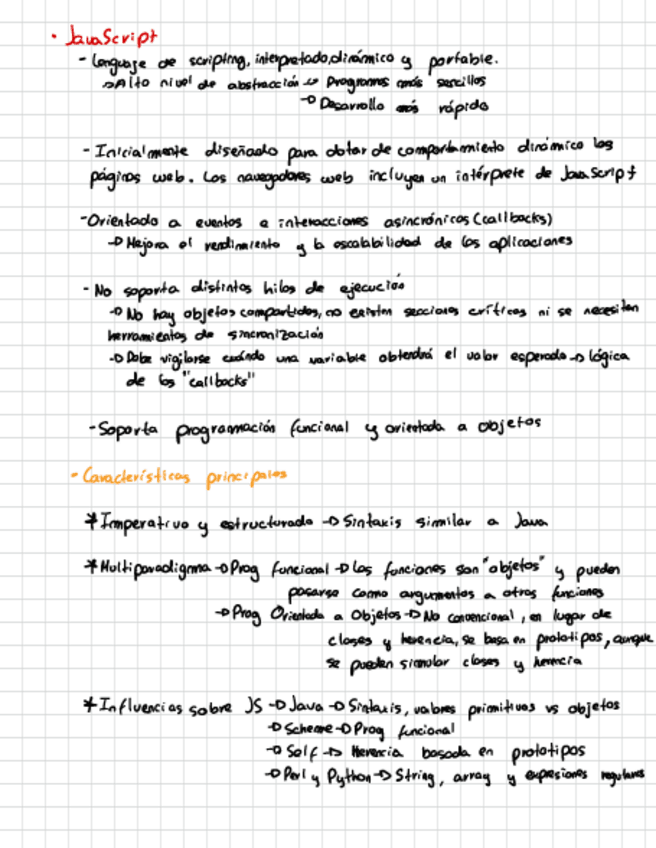 • JavaScript
- Lenguaje de scripting, interpretado, dinámico y portable.
→ Alto nivel de abstracción → Programas más sencillos
→ Desarrollo más rápido
- Inicialmente diseñado para dotar de comportamiento dinámico las
páginas web. Los navegadores web incluyen un intérprete de JavaScript
- Orientado a eventos e interacciones asincrónicas (callbacks)
→ Mejora el rendimiento y la escalabilidad de las aplicaciones
- No soporta distintos hilos de ejecución
→ No hay objetos compartidos, no existen secciones críticas ni se necesitan
herramientas de sincronización
→ Debe vigilarse cuándo una variable obtendrá el valor esperado → lógica
de los "callbacks"
- Soporta programación funcional y orientada a objetos
- Características principales
* Imperativo y estructurado → Sintaxis similar a Java
* Multiparadigma → Prog funcional → Las funciones son "objetos" y pueden
pasarse como argumentos a otras funciones
→ Prog Orientada a Objetos → No convencional, en lugar de
clases y herencia, se basa en prototipos, aunque
se pueden simular clases y herencia
* Influencias sobre JS → Java → Sintaxis, valores primitivos vs objetos
→ Scheme → Prog funcional
→ Self → Herencia basada en prototipos
→ Perl y Python → String, array y expresiones regulares